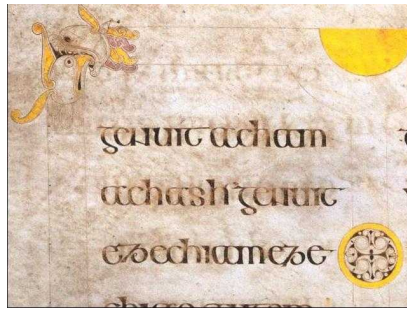 genuit acham
achas h' genuit
ezechiam eze